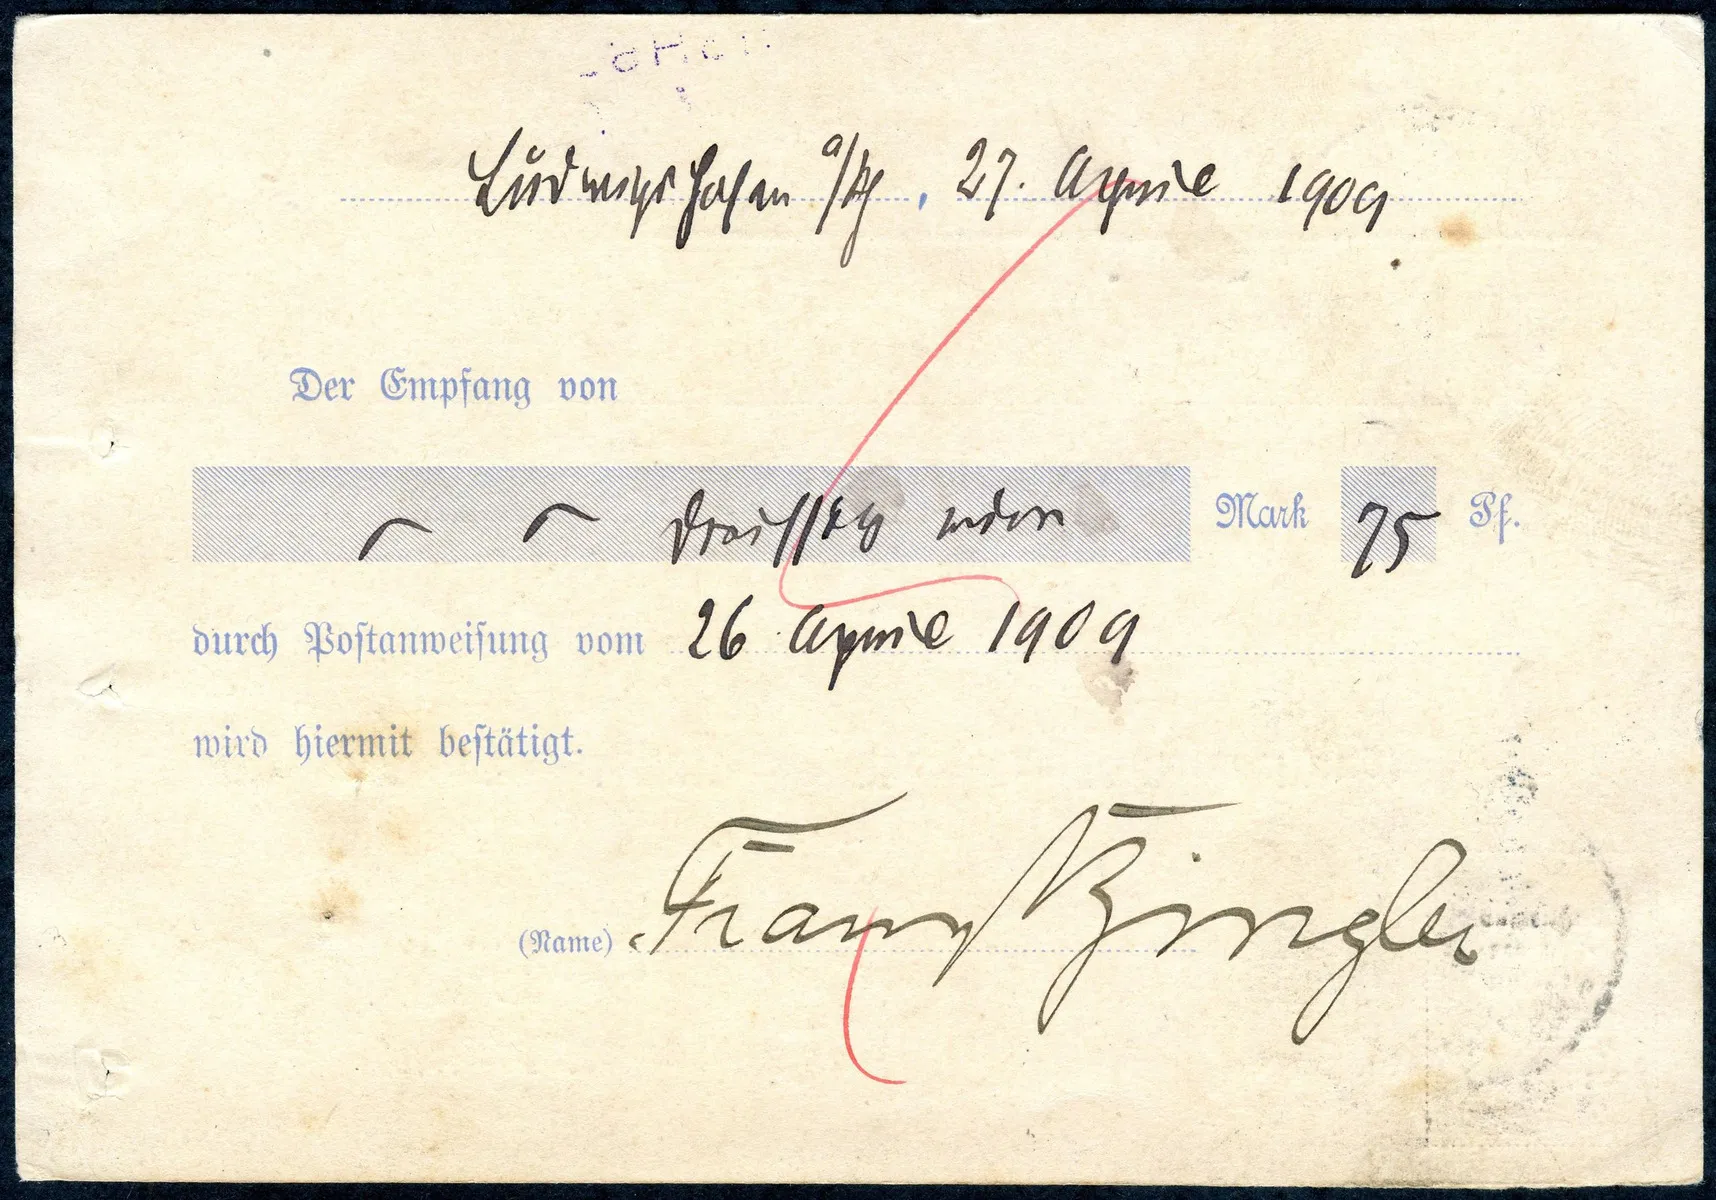 Ludwigshafen a/Rh, 27. April 1909
Der Empfang von
dreissig Mark 75 Pf.
durch Postanweisung vom 26 April 1909
wird hiermit bestätigt.
(Name) Franz Zingler